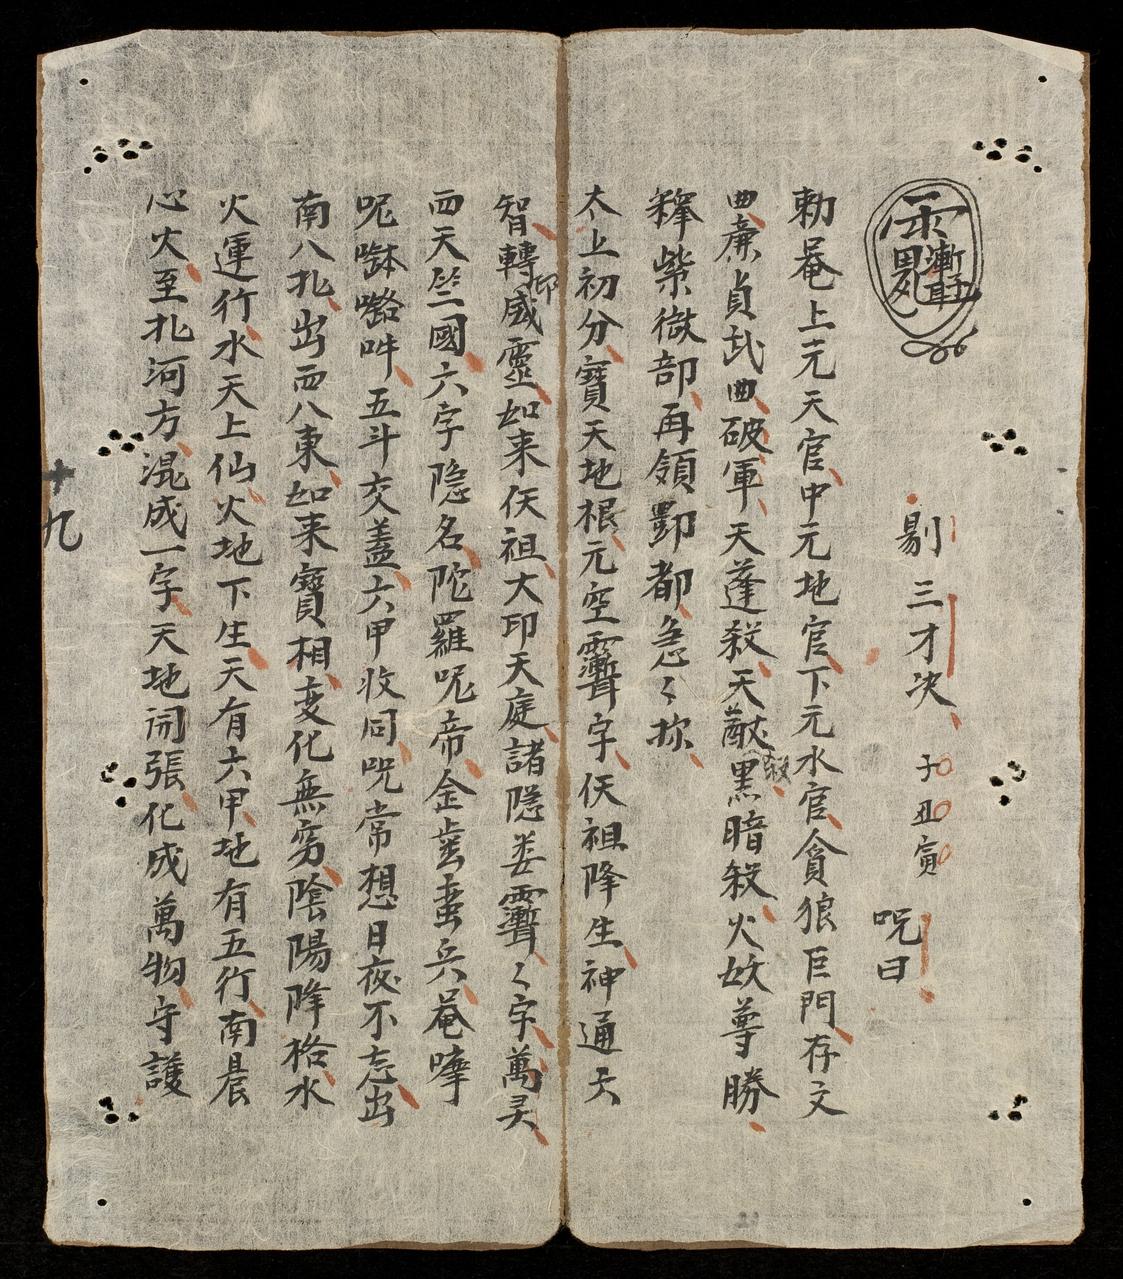 剔三才決子丑寅呪曰
勅奄上元天官中元地官下元水官貪狼巨門存文
曲廉貞武曲破軍天蓬殺天猷殺黑暗殺火妖尊勝
釋紫微部再領酆都急〻
太上初分寶天地根元空䨳字仸祖降生神通天
智轉印威靈如来仸祖大印天庭諸隠姜䨳〻字萬灵
西天竺國六字隐名陀羅呢帝金齒兵奄㗶
呢吽五斗交盖六甲收同呪常想日夜不忘出
南八北出西八東如来寶相变化無穷陰陽降格水
火運行水天上仙火地下生天有六甲地有五行南晨
心火至北河方混成一字天地開張化成萬物守護
十九